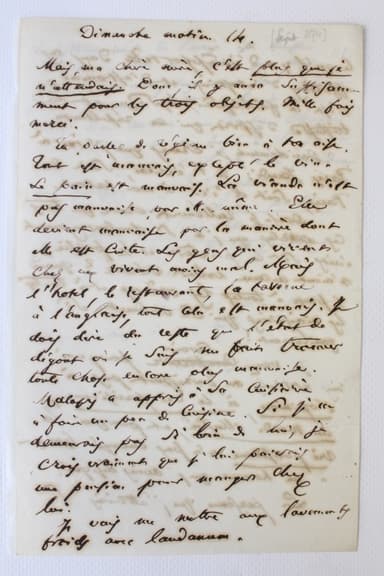 Dimanche matin 14.
Mais, ma chère mère, c'est plus que je
n'attendais. Donc, il y aura suffisam-
ment pour les trois objets. Mille fois
merci.
Tu parles de régime bien à ton aise.
Tout est mauvais, excepté le vin.
Le pain est mauvais. La viande n'est
pas mauvaise par elle-même. Elle
devient mauvaise par la manière dont
elle est cuite. Les gens qui vivent
chez eux vivent moins mal. Mais
l'hôtel, le restaurant, la taverne
à l'anglaise, tout cela est mauvais. Je
dois dire du reste que l'état de
dégoût où je suis me fait trouver
toute chose encore plus mauvaise.
Malassis a appris à sa cuisinière
à faire un peu de cuisine. Si je ne
demeurais pas si loin de lui, je
crois vraiment que je lui paierais
une pension pour manger chez
lui.
Je vais me mettre aux lavements
froids avec laudanum.